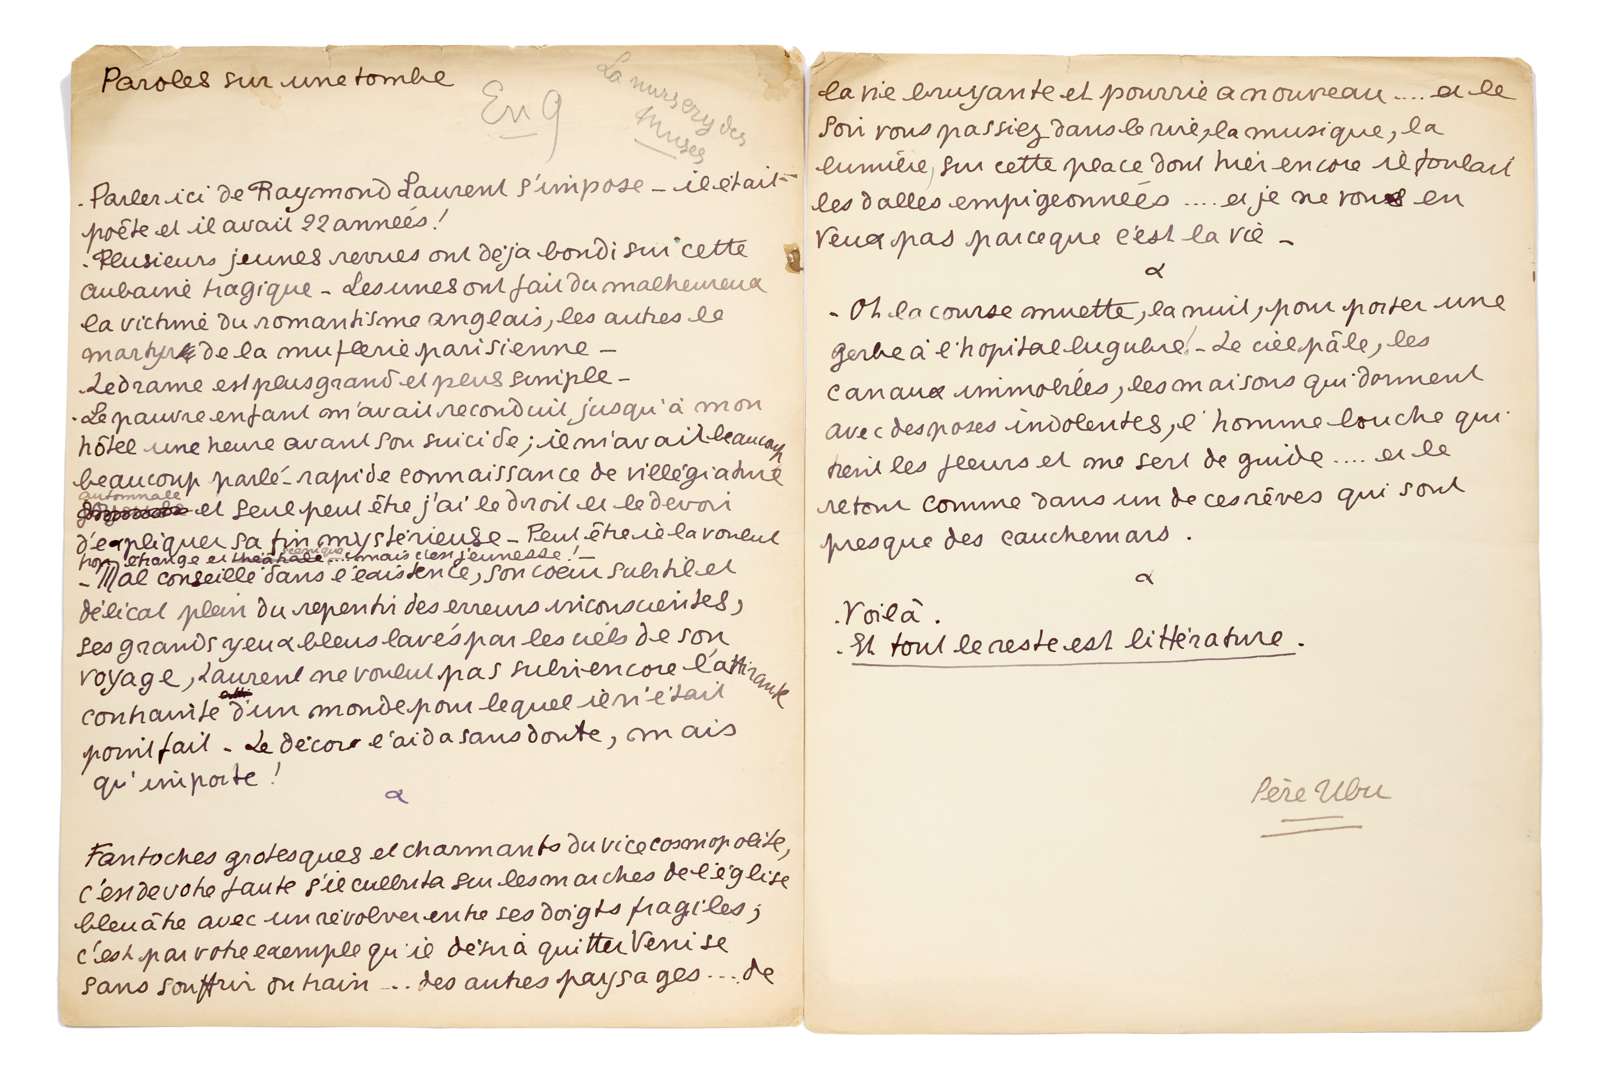 Paroles sur une tombe
En 9
La nursery des
Muses
. Parler ici de Raymond Laurent s'impose – il était
poête et il avait 22 années!
. Plusieurs jeunes revues ont déja bondi sur cette
aubaine tragique – Les unes ont fait du malheureux
la victime du romantisme anglais, les autres le
martyr de la muflerie parisienne –
. Le drame est plus grand et plus simple –
. Le pauvre enfant m'avait reconduit jusqu'à mon
hôtel une heure avant son suicide; il m'avait beaucoup
beaucoup parlé – rapide connaissance de villégiature
automnale
et seul peut être j'ai le droit et le devoir
d'expliquer sa fin mystérieuse – Peut être il la voulut
scenique
trop étrange et théâtrale ... mais c'est jeunesse! –
– Mal conseillé dans l'existence, son coeur subtil et
délicat plein du repentir des erreurs inconscientes,
ses grands yeux bleus lavés par les ciels de son
voyage, Laurent ne voulut pas subir encore l'attirante
contrainte d'un monde pour lequel il n'était
point fait – Le décor l'aida sans doute, mais
qu'importe!
α
Fantoches grotesques et charmants du vice cosmopolite,
c'est de votre faute s'il culbuta sur les marches de l'église
bleuâtre avec un révolver entre ses doigts fragiles;
c'est par votre exemple qu'il désira quitter Venise
sans souffrir du train ... des autres paysages ... de
la vie bruyante et pourrie a nouveau .... et le
soir vous passiez dans le vice, la musique, la
lumière, sur cette place dont hier encore il foulait
les dalles empigeonnées .... et je ne vous en
veux pas parce que c'est la vie –
α
– Oh la course muette, la nuit, pour porter une
gerbe à l'hopital lugubre! – Le ciel pâle, les
canaux immobiles, les maisons qui dorment
avec des poses indolentes, l'homme louche qui
tient les fleurs et me sert de guide .... et le
retour comme dans un de ces rêves qui sont
presque des cauchemars.
α
. Voilà.
. Et tout le reste est littérature.
Père Ubu